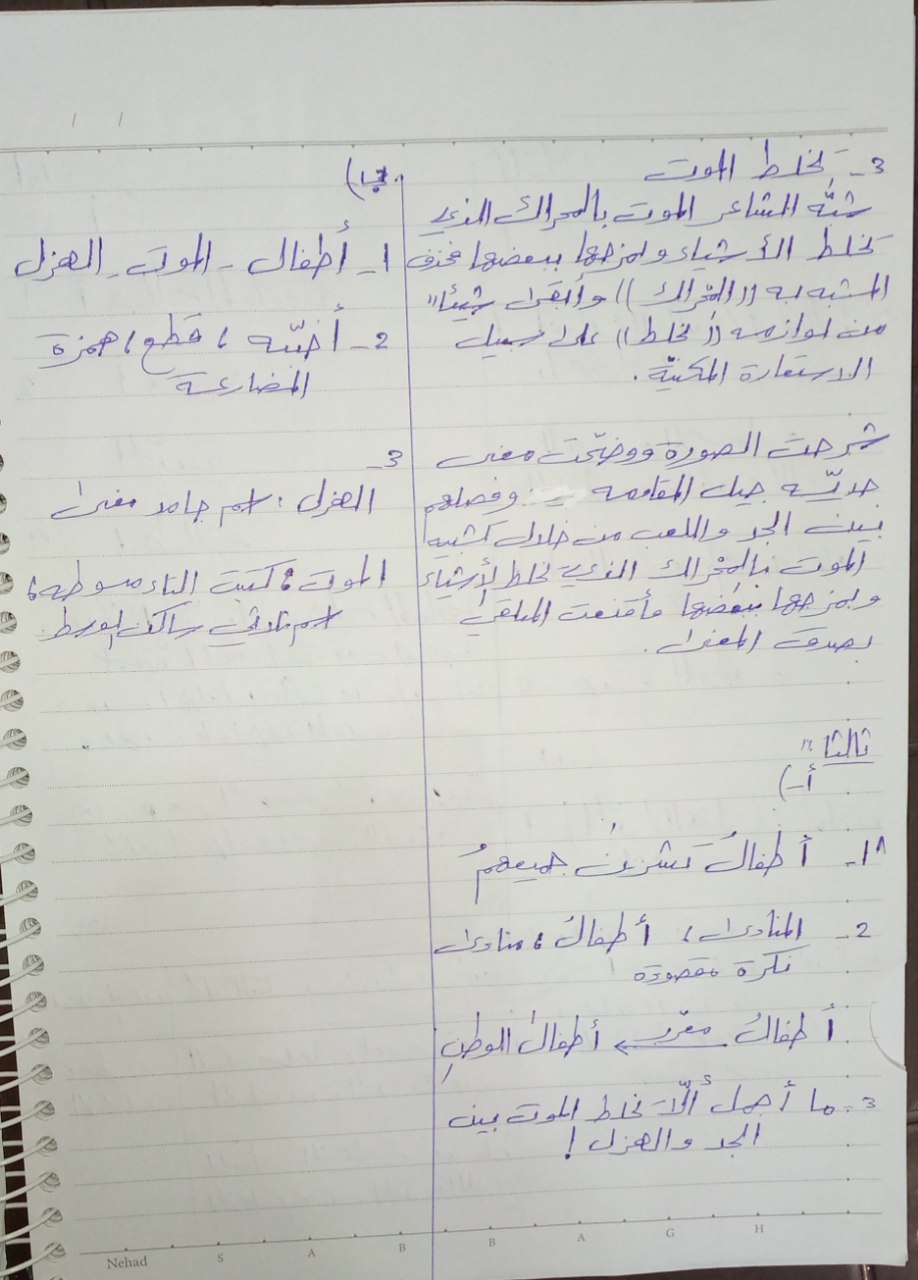 3- يخلط الموت
شبّه الشاعر الموت بالمحراك الذي
يخلط الأشياء ويمزجها ببعضها فحذف
المشبه به ((المحراك)) وأبقى شيئاً
من لوازمه ((يخلط)) على سبيل
الاستعارة المكنيّة.
شرحت الصورة ووضّحت معنى
جديّة جيل المقاومة وفصلهم
بين الجد واللعب من خلال تشبيه
الموت بالمحراك الذي يخلط الأشياء
ويمزجها ببعضها فأقنعت المتلقي
بصدق المعنى.
ثالثاً:
أ-)
1- أطفالُ تشرينَ جميعهمُ
2- المنادى، أطفالُ: منادى
نكرة مقصودة
أطفالُ معرب أطفالَ الوطنِ
3- ما أجمل ألّا نخلط الموت بين
الجد والهزل!
ب)
1- أطفال - الموت - الهزل
2- أخبّه، قطع، همزة
المضارعة
3-
الهزل: اسم جامد معنى
الموت: كتبت التاء مبسوطة:
اسم ثلاثي ساكن الوسط
Nehad S A B B A G H